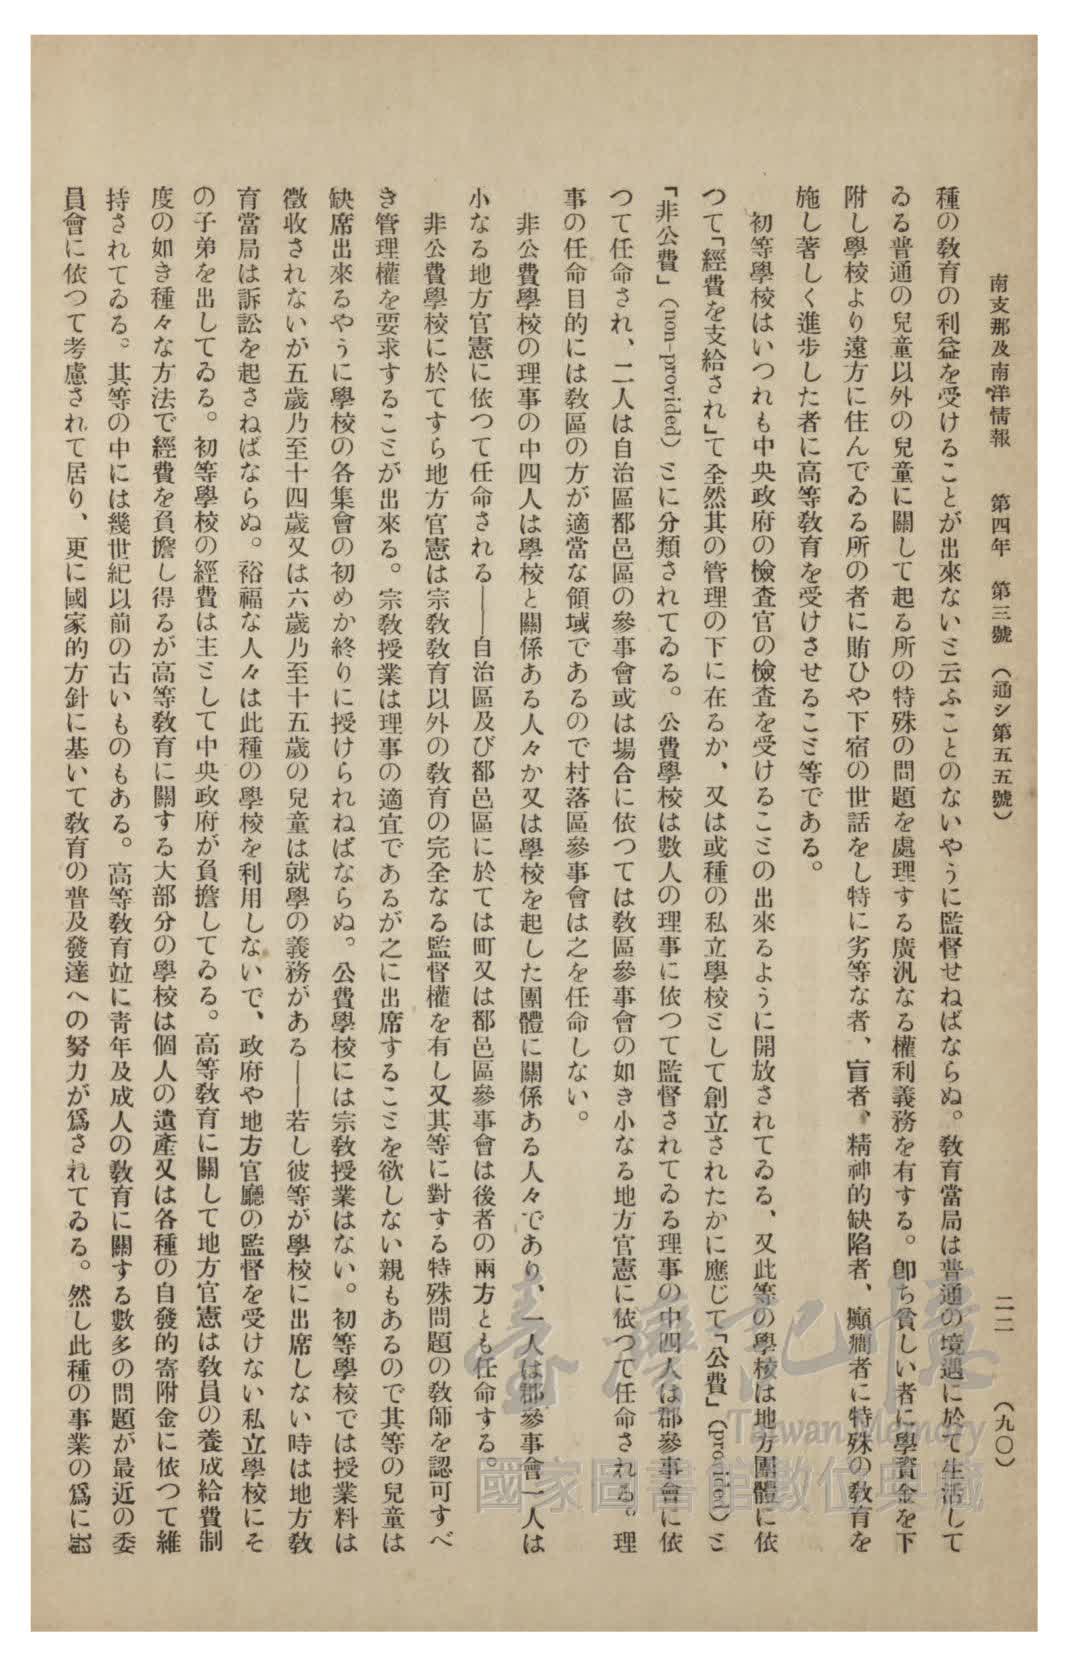 南支那及南洋情報　第四年　第三號　（通シ第五五號）　二二　（九〇）
種の敎育の利益を受けることが出來ないミ云ふことのないやうに監督せねばならぬ。敎育當局は普通の境遇に於て生活して
ゐる普通の兒童以外の兒童に關して起る所の特殊の問題を處理する廣汎なる權利義務を有する。卽ち貧しい者に學資金を下
附し學校より遠方に住んでゐる所の者に賄ひや下宿の世話をし特に劣等な者、盲者、精神的缺陷者、癲癇者に特殊の敎育を
施し著しく進步した者に高等敎育を受けさせるこミ等である。
初等學校はいつれも中央政府の檢査官の檢査を受けるこミの出來るように開放されてゐる、又此等の學校は地方團體に依
つて「經費を支給され」て全然其の管理の下に在るか、又は或種の私立學校ミして創立されたかに應じて「公費」（provided）ミ
「非公費」（non-provided）ミに分類されてゐる。公費學校は數人の理事に依つて監督されてゐる理事の中四人は郡參事會に依
つて任命され、二人は自治區都邑區の參事會或は場合に依つては敎區參事會の如き小なる地方官憲に依つて任命される。理
事の任命目的には敎區の方が適當な領域であるので村落區參事會は之を任命しない。
非公費學校の理事の中四人は學校と關係ある人々か又は學校を起した團體に關係ある人々であり、一人は郡參事會一人は
小なる地方官憲に依つて任命される――自治區及び都邑區に於ては町又は都邑區參事會は後者の兩方とも任命する。
非公費學校に於てすら地方官憲は宗敎敎育以外の敎育の完全なる監督權を有し又其等に對する特殊問題の敎師を認可すべ
き管理權を要求するこミが出來る。宗敎授業は理事の適宜であるが之に出席するこミを欲しない親もあるので其等の兒童は
缺席出來るやうに學校の各集會の初めか終りに授けられねばならぬ。公費學校には宗敎授業はない。初等學校では授業料は
徵收されないが五歲乃至十四歲又は六歲乃至十五歲の兒童は就學の義務がある――若し彼等が學校に出席しない時は地方敎
育當局は訴訟を起さねばならぬ。裕福な人々は此種の學校を利用しないで、政府や地方官廳の監督を受けない私立學校にそ
の子弟を出してゐる。初等學校の經費は主ミして中央政府が負擔してゐる。高等敎育に關して地方官憲は敎員の養成給費制
度の如き種々な方法で經費を負擔し得るが高等敎育に關する大部分の學校は個人の遺產又は各種の自發的寄附金に依つて維
持されてゐる。其等の中には幾世紀以前の古いものもある。高等敎育竝に靑年及成人の敎育に關する數多の問題が最近の委
員會に依つて考慮されて居り、更に國家的方針に基いて敎育の普及發達への努力が爲されてゐる。然し此種の事業の爲に
臺灣記憶
Taiwan Memory
國家圖書館數位典藏